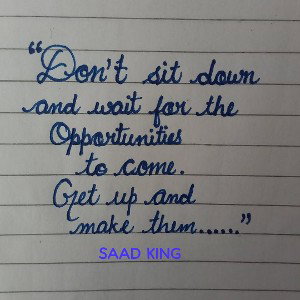 “Don't sit down
and wait for the
Opportunities
to come.
Get up and
make them......”
SAAD KING